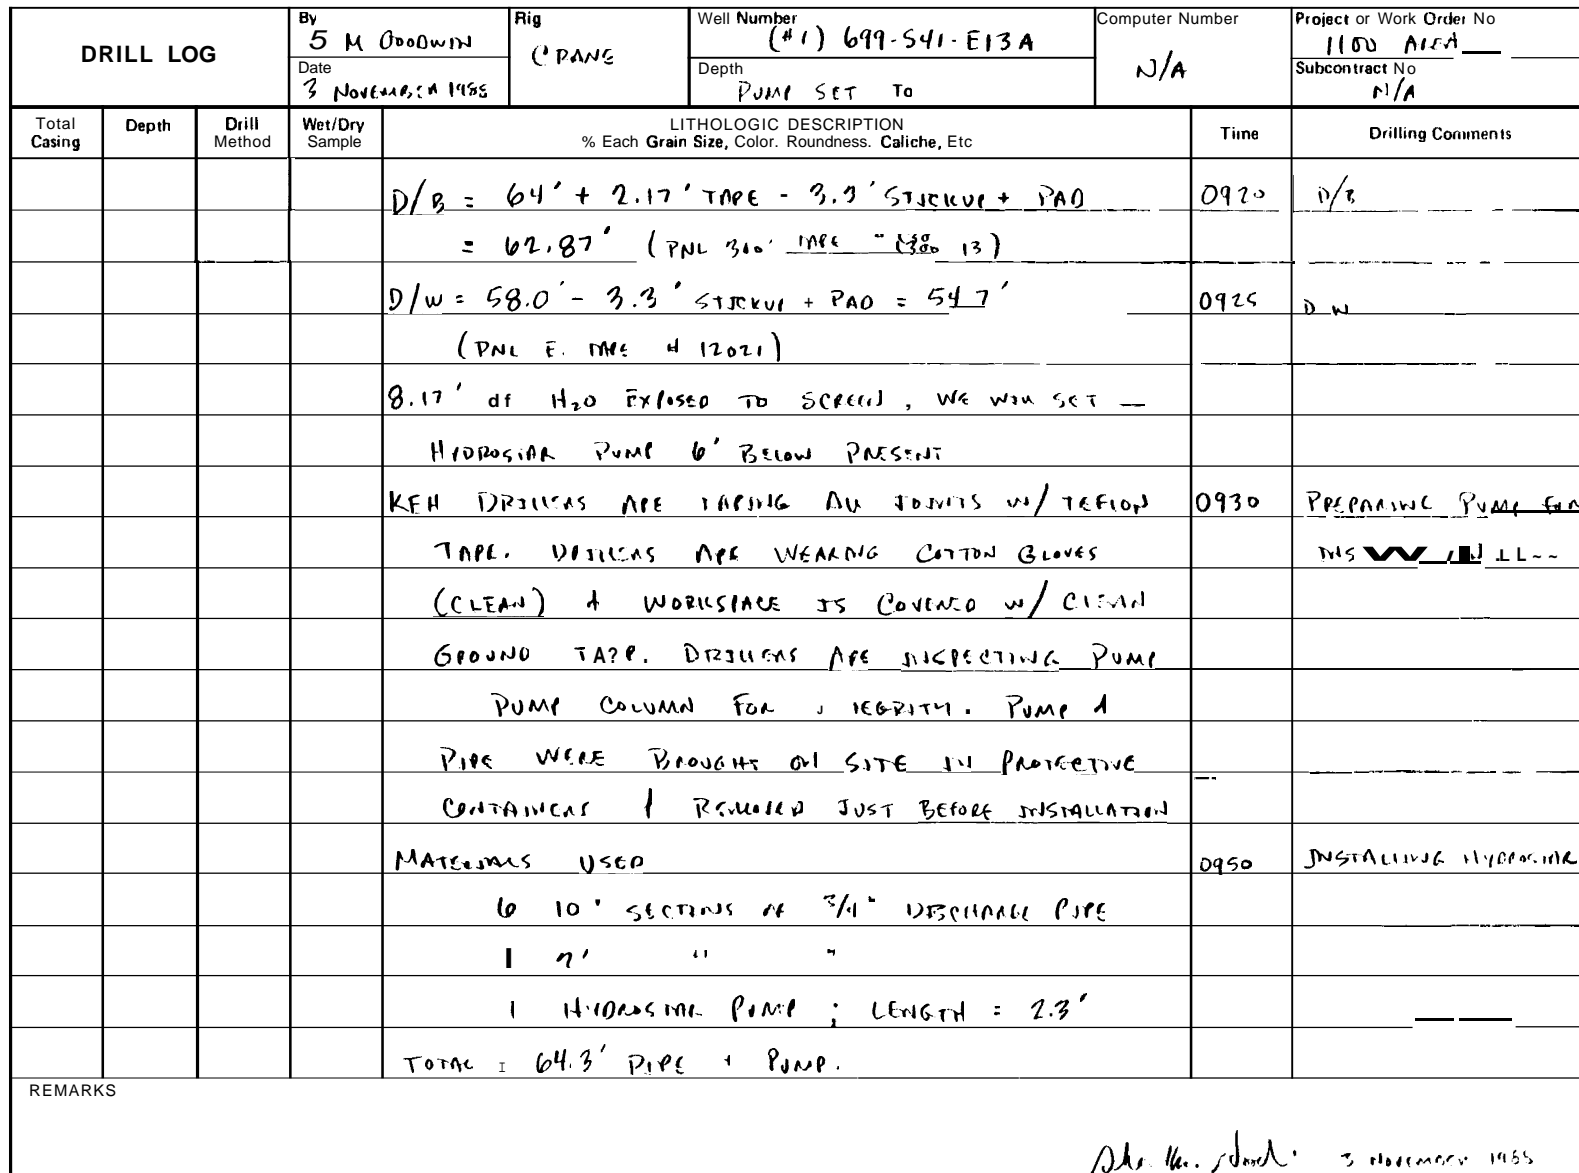 DRILL LOG
By
5 M GOODWIN
Date
3 NOVEMBER 1988
Rig
CRANE
Well Number
(#1) 699-S41-E13A
Depth
PUMP SET TO
Computer Number
N/A
Project or Work Order No
1100 AREA
Subcontract No
N/A
Total Casing
Depth
Drill Method
Wet/Dry Sample
LITHOLOGIC DESCRIPTION
% Each Grain Size, Color. Roundness. Caliche, Etc
Time
Drilling Comments
D/B = 64' + 2.17' TAPE - 3.3' STICKUP + PAD 0920 D/B
= 62.87' (PNL 300' TAPE 13)
D/W = 58.0' - 3.3' STICKUP + PAD = 54 7' 0925 D W
(PNL E. TAPE # 12021)
8.17' of H2O EXPOSED TO SCREEN, WE WILL SET —
HYDROSTAR PUMP 6' BELOW PRESENT
KEH DRILLERS ARE TAPING ALL JOINTS W/ TEFLON 0930 PREPARING PUMP FOR
TAPE. DRILLERS ARE WEARING COTTON GLOVES
(CLEAN) & WORKSPACE IS COVERED W/ CLEAN
GROUND TA?P. DRILLERS ARE INSPECTING PUMP
PUMP COLUMN FOR INTEGRITY. PUMP &
PIPE WERE BROUGHT ON SITE IN PROTECTIVE
CONTAINERS & REMOVED JUST BEFORE INSTALLATION
MATERIALS USED 0950 INSTALLING HYDROSTAR
6 10' SECTIONS OF 3/4" DISCHARGE PIPE
1 2' " "
1 HYDROSTAR PUMP ; LENGTH = 2.3'
TOTAL = 64.3' PIPE + PUMP.
REMARKS
3 NOVEMBER 1988